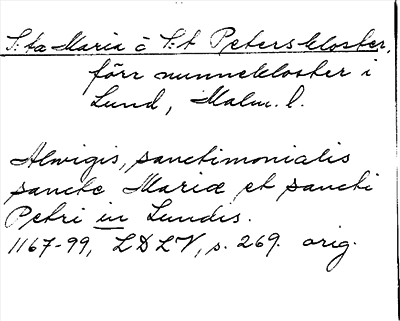 S:ta Maria o S:t Peterskloster,
förr nunnekloster i
Lund, Malm. l.
Alwigis, sanctimonialis
sancte Marie et sancti
Petri in Lundis.
1167-99, LDLV, s. 269. orig.